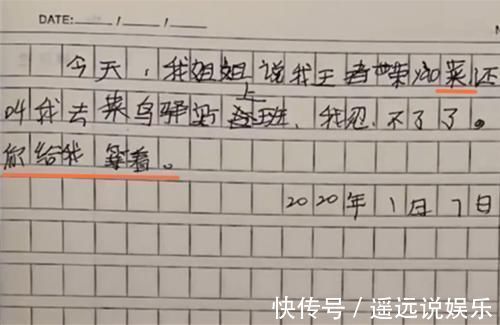 DATE: / /
今天,我姐姐说我王者荣耀菜还
叫我去菜鸟驿站上班,我忍不了了。
你给我等着。
2020年1月7日
快传号 / 遥远说娱乐